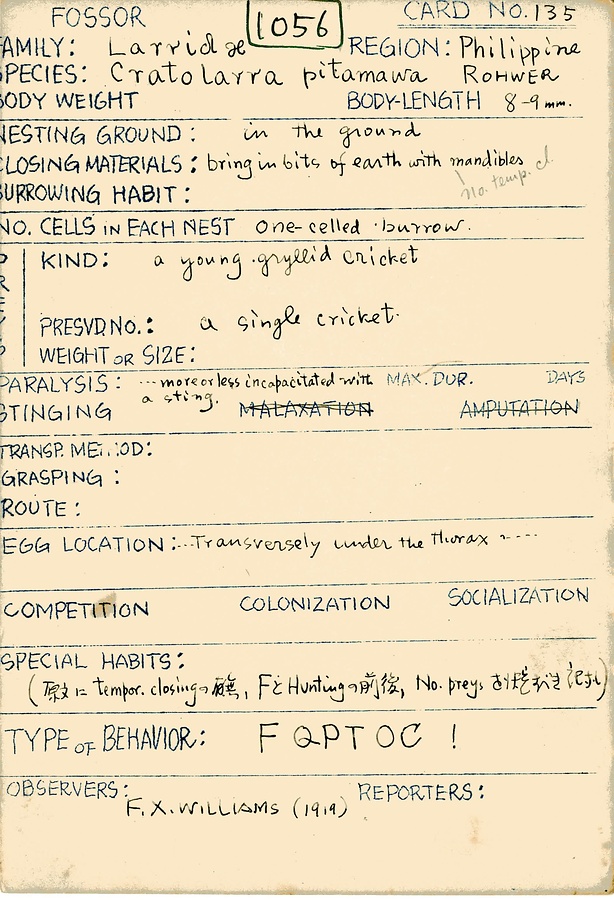 FOSSOR
1056
CARD NO. 135
FAMILY: Larridæ REGION: Philippine
SPECIES: Cratolarra pitamawa ROHWER
BODY WEIGHT BODY-LENGTH 8-9 mm.
NESTING GROUND: in the ground
CLOSING MATERIALS: bring in bits of earth with mandibles
no. temp. cl.
BURROWING HABIT:
NO. CELLS IN EACH NEST One-celled burrow.
KIND: a young gryllid cricket
PRESVD NO.: a single cricket.
WEIGHT OR SIZE:
PARALYSIS: ... more or less incapacitated with MAX. DUR. DAYS
a sting.
STINGING MALAXATION AMPUTATION
TRANSP. METHOD:
GRASPING:
ROUTE:
EGG LOCATION: ... Transversely under the thorax ....
COMPETITION COLONIZATION SOCIALIZATION
SPECIAL HABITS:
(原文に tempor. closing の有無, FとHuntingの前後, No. preys
TYPE OF BEHAVIOR: F Q P T O C !
OBSERVERS: REPORTERS:
F. X. WILLIAMS (1919)